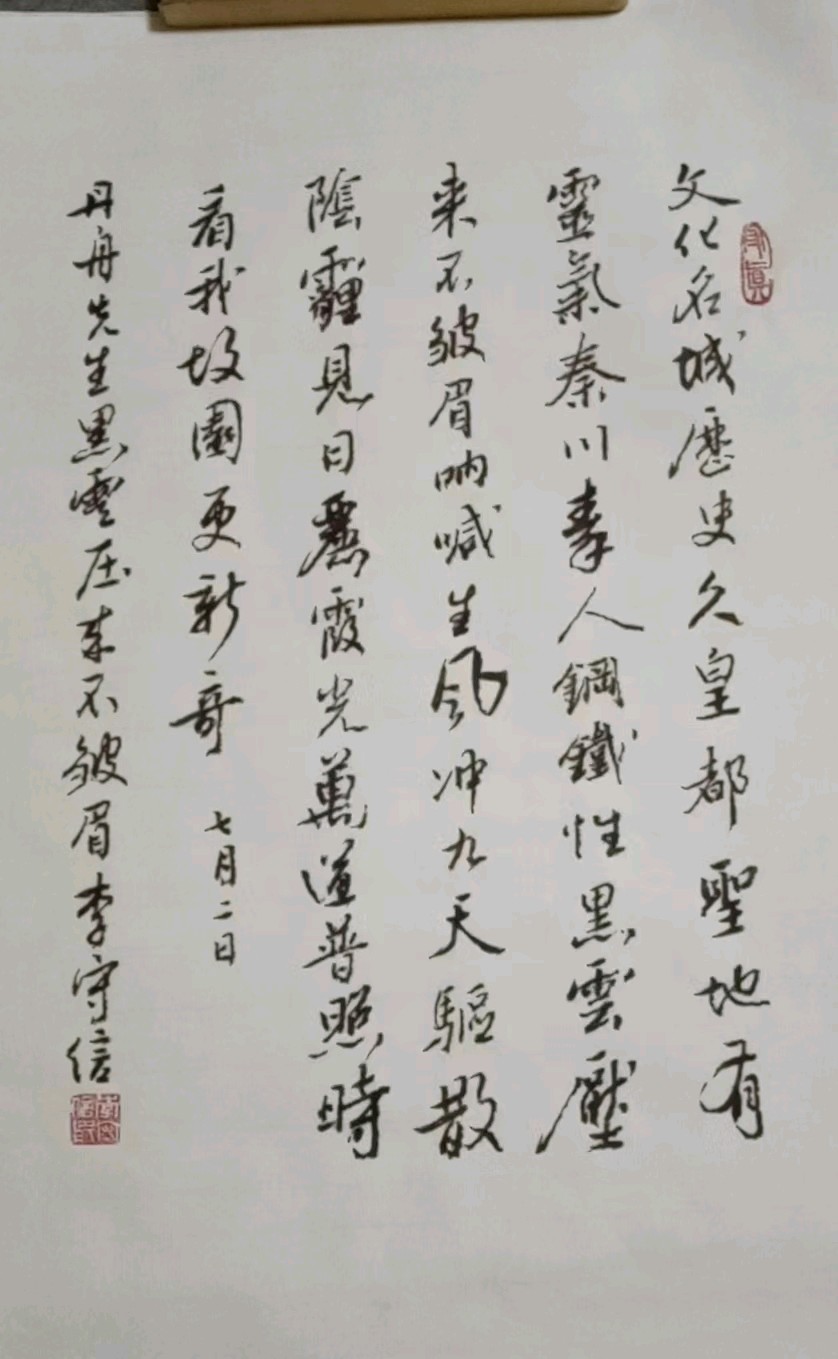 文化名城歷史久皇都聖地有
靈氣秦川秦人鋼鐵性黑雲壓
来不皱眉呐喊生风冲九天驅散
陰霾見日麗霞光萬道普照時
看我故園更新奇
七月二日
丹舟先生黑雲压来不皱眉李守信